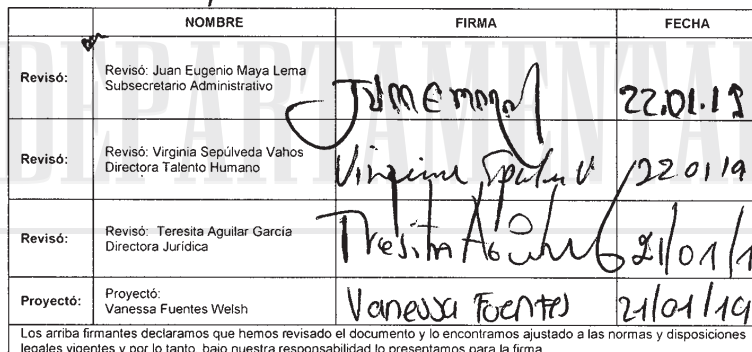 NOMBRE FIRMA FECHA
Revisó: Revisó: Juan Eugenio Maya Lema
Subsecretario Administrativo 22.01.19
Revisó: Revisó: Virginia Sepúlveda Vahos
Directora Talento Humano Virginia Sepúlveda V 22 01 19
Revisó: Revisó: Teresita Aguilar García
Directora Jurídica Teresita Aguilar G 21/01/1
Proyectó: Proyectó:
Vanessa Fuentes Welsh Vanessa Fuentes 21/01/19
Los arriba firmantes declaramos que hemos revisado el documento y lo encontramos ajustado a las normas y disposiciones
legales vigentes y por lo tanto, bajo nuestra responsabilidad lo presentamos para la firma.
DEPARTAMENTAL